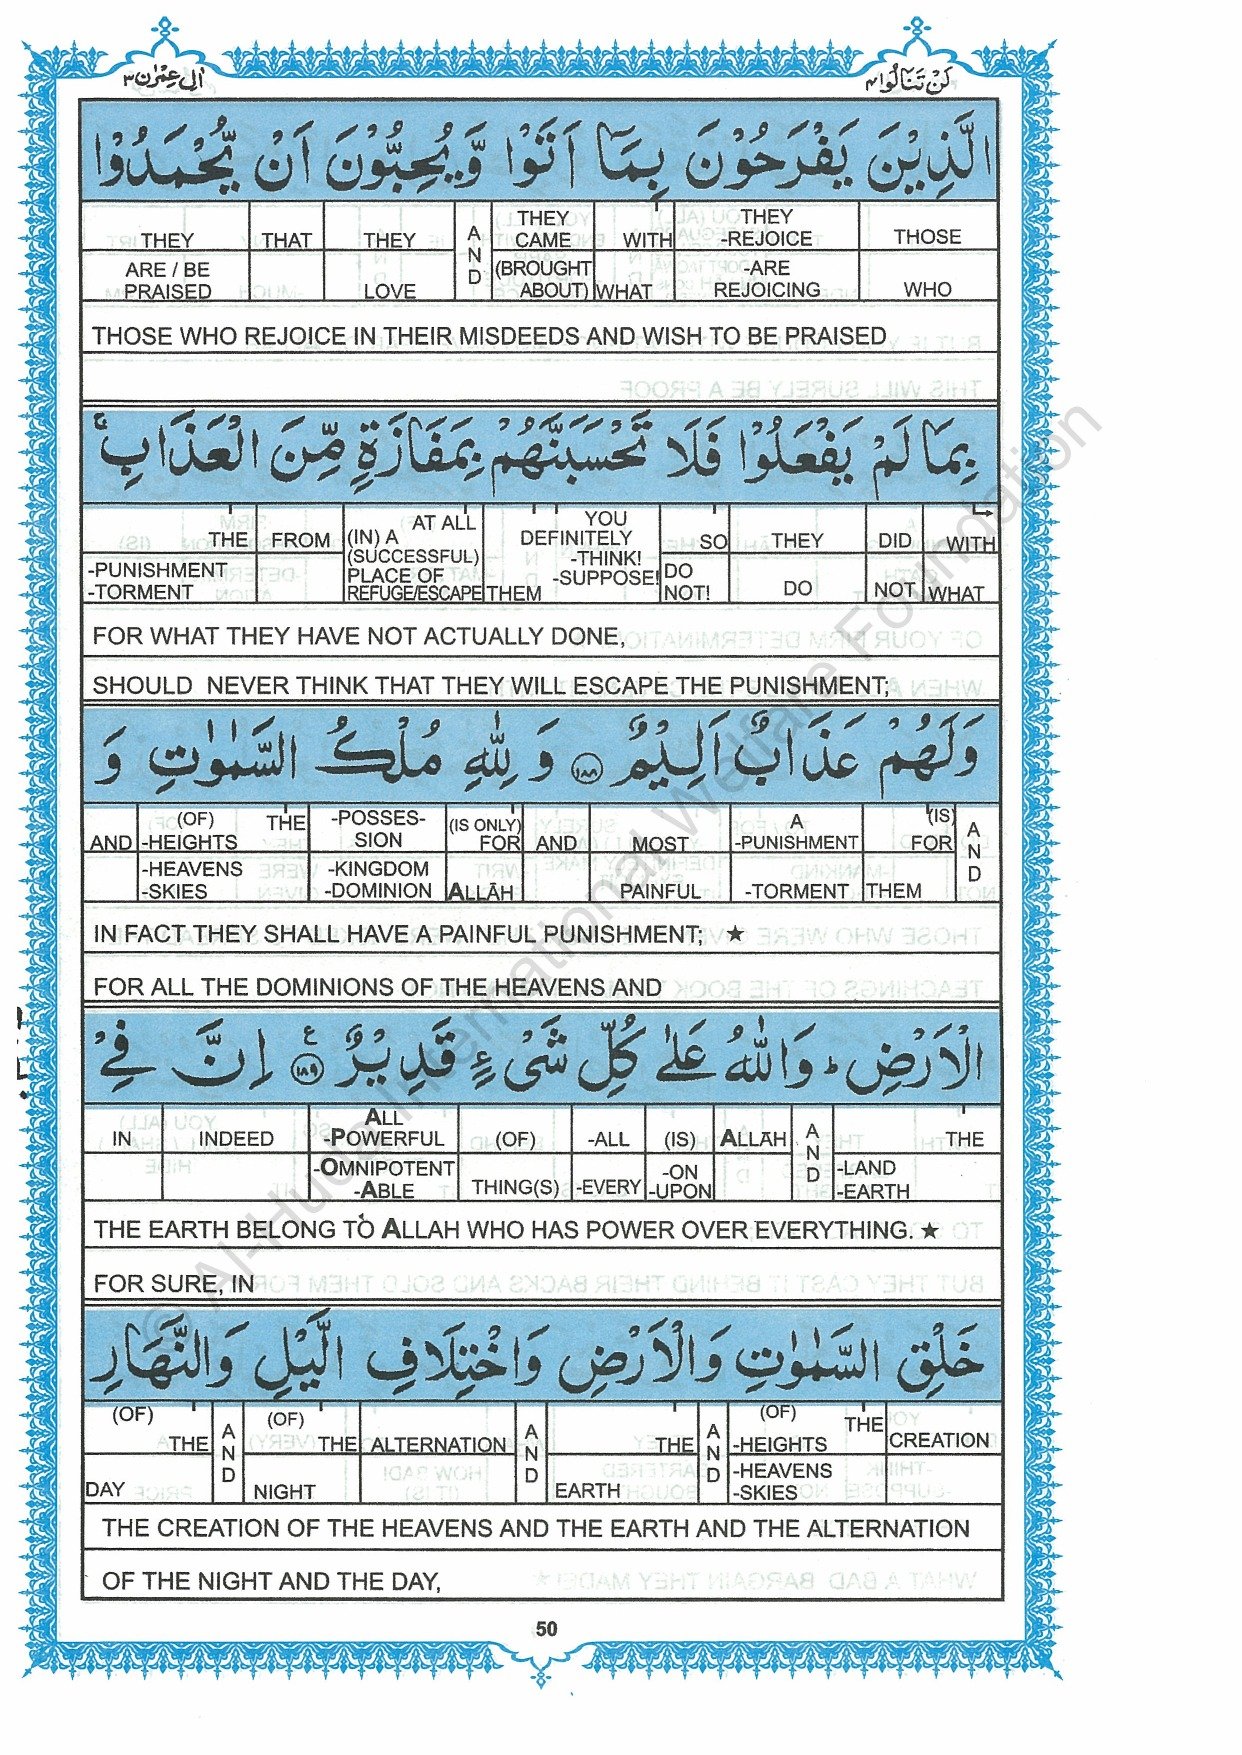 اٰل عِمْرٰن ٣
لَنْ تَنَالُوا ٤
الَّذِيْنَ يَفْرَحُوْنَ بِمَآ اَتَوْا وَّيُحِبُّوْنَ اَنْ يُّحْمَدُوْا
THEY ARE / BE PRAISED | THAT | THEY LOVE | AND | THEY CAME (BROUGHT ABOUT) | WITH WHAT | THEY -REJOICE -ARE REJOICING | THOSE WHO
THOSE WHO REJOICE IN THEIR MISDEEDS AND WISH TO BE PRAISED
بِمَا لَمْ يَفْعَلُوْا فَلَا تَحْسَبَنَّهُمْ بِمَفَازَةٍ مِّنَ الْعَذَابِ ۚ
THE -PUNISHMENT -TORMENT | FROM | AT ALL (IN) A (SUCCESSFUL) PLACE OF REFUGE/ESCAPE | YOU DEFINITELY -THINK! -SUPPOSE! THEM | SO DO NOT! | THEY DO | DID NOT | WITH WHAT
FOR WHAT THEY HAVE NOT ACTUALLY DONE,
SHOULD NEVER THINK THAT THEY WILL ESCAPE THE PUNISHMENT;
وَلَهُمْ عَذَابٌ اَلِيْمٌ ١٨٨ وَ لِلّٰهِ مُلْكُ السَّمٰوٰتِ وَ
AND | (OF) THE -HEIGHTS -HEAVENS -SKIES | -POSSES- SION -KINGDOM -DOMINION | (IS ONLY) FOR ALLĀH | AND | MOST PAINFUL | A -PUNISHMENT -TORMENT | (IS) FOR THEM | AND
IN FACT THEY SHALL HAVE A PAINFUL PUNISHMENT; ★
FOR ALL THE DOMINIONS OF THE HEAVENS AND
الْاَرْضِ ؕ وَاللّٰهُ عَلٰى كُلِّ شَىْءٍ قَدِيْرٌ ١٨٩ ع اِنَّ فِىْ
IN | INDEED | ALL -POWERFUL -OMNIPOTENT -ABLE | (OF) THING(S) | -ALL -EVERY | (IS) -ON -UPON | ALLAH | AND | THE -LAND -EARTH
THE EARTH BELONG TO ALLAH WHO HAS POWER OVER EVERYTHING. ★
FOR SURE, IN
خَلْقِ السَّمٰوٰتِ وَالْاَرْضِ وَاخْتِلَافِ الَّيْلِ وَالنَّهَارِ
(OF) THE DAY | AND | (OF) THE NIGHT | ALTERNATION | AND | THE EARTH | AND | (OF) THE -HEIGHTS -HEAVENS -SKIES | CREATION
THE CREATION OF THE HEAVENS AND THE EARTH AND THE ALTERNATION
OF THE NIGHT AND THE DAY,
50
© Al-Huda International Welfare Foundation